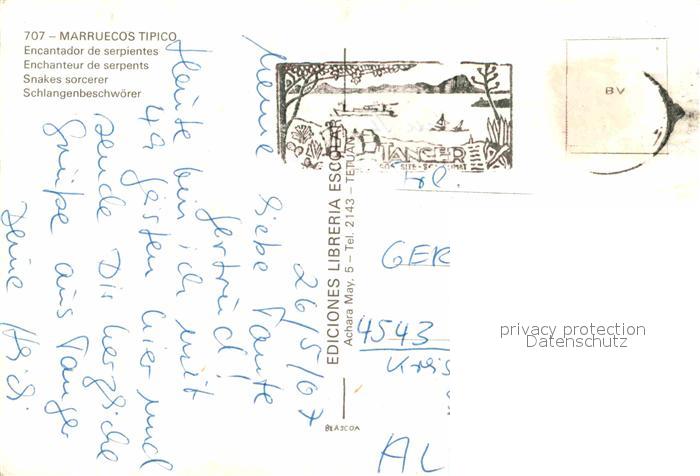 707 – MARRUECOS TIPICO
Encantador de serpientes
Enchanteur de serpents
Snakes sorcerer
Schlangenbeschwörer
26/5/67
Meine liebe Tante
Gertrud!
Heute bin ich mit
49 Gästen hier und
sende Dir herzliche
Grüße aus Tanger
Deine
EDICIONES LIBRERIA ESCOLAR
Achara May, 5 – Tel. 2143 – TETUAN
BLASCOA
TANGER
SON SITE-SON CLIMAT
BV
Frl.
GER
4543
Kreis
AL
privacy protection
Datenschutz